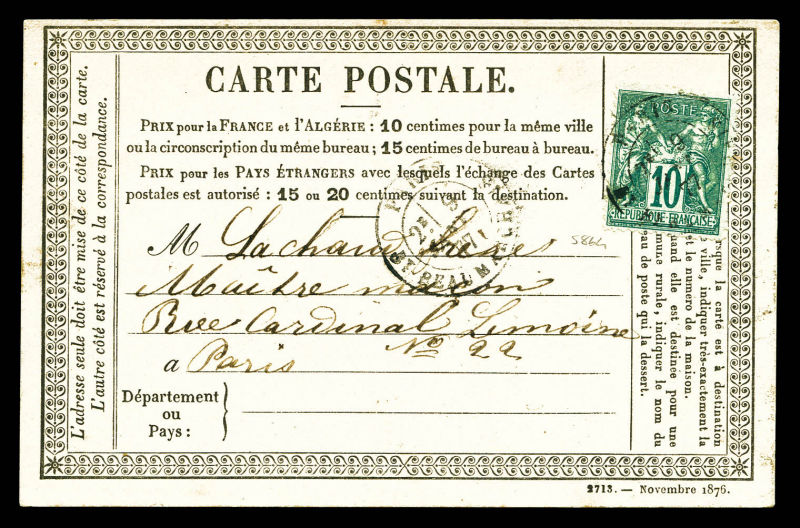 CARTE POSTALE.
PRIX pour la FRANCE et l'ALGÉRIE : 10 centimes pour la même ville
ou la circonscription du même bureau ; 15 centimes de bureau à bureau.
PRIX pour les PAYS ÉTRANGERS avec lesquels l'échange des Cartes
postales est autorisé : 15 ou 20 centimes suivant la destination.
M Lachaud
Maître maçon
Rue Cardinal Lemoine
No 22
a Paris
Département
ou
Pays :
L'adresse seule doit être mise de ce côté de la carte.
L'autre côté est réservé à la correspondance.
POSTE
10
REPUBLIQUE FRANÇAISE
PARIS
5864
rsque la carte est à destination
e ville, indiquer très-exactement la
et le numero de la maison.
uand elle est destinée pour une
mmune rurale, indiquer le nom du
eau de poste qui la dessert.
2713. — Novembre 1876.